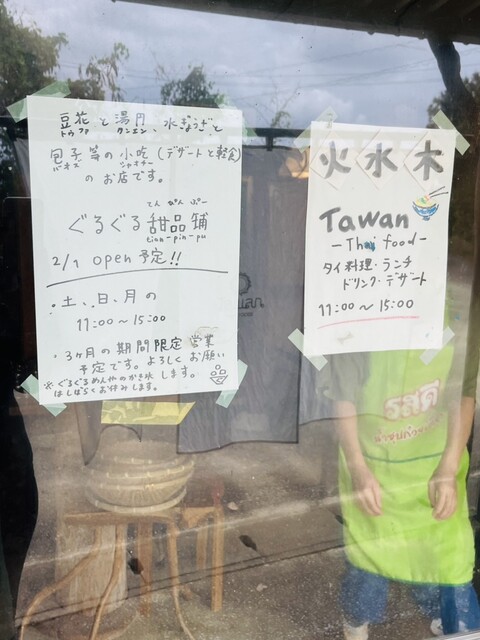 豆花と湯円、水ぎょうざと
トウファ タンエン
包子等の小吃(デザートと軽食)
パオズ シャオチー
のお店です。
てん ぴん ぷー
ぐるぐる甜品舗
tian-pin-pu
2/1 open予定!!
・土、日、月の
11:00〜15:00
・3ヶ月の期間限定営業
予定です。よろしくお願い
します。
※ぐるぐるめんやのかき氷
はしばらくお休みします。
火水木
Tawan
-Thai food-
タイ料理・ランチ
ドリンク・デザート
11:00〜15:00
รสดี